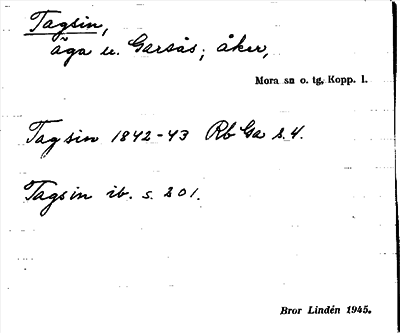 Tagsin,
äga u. Garsås; åker,
Mora sn o. tg, Kopp. l.
Tagsin 1842-43 Rb Ga s. 4.
Tagsin ib. s. 201.
Bror Lindén 1945.